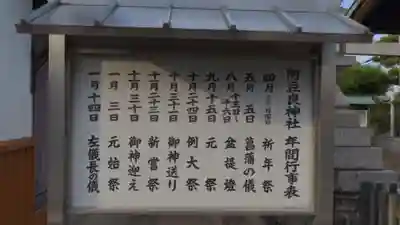 阿豆良神社 年間行事表
四月 祈年祭
五月五日 菖蒲の儀
八月十五日 十六日 盆提燈
九月十五日 元祭
十月二十四日 例大祭
十月三十一日 御神送り
十一月二十三日 新嘗祭
十一月三十日 御神迎え
一月三日 元始祭
一月十四日 左儀長の儀